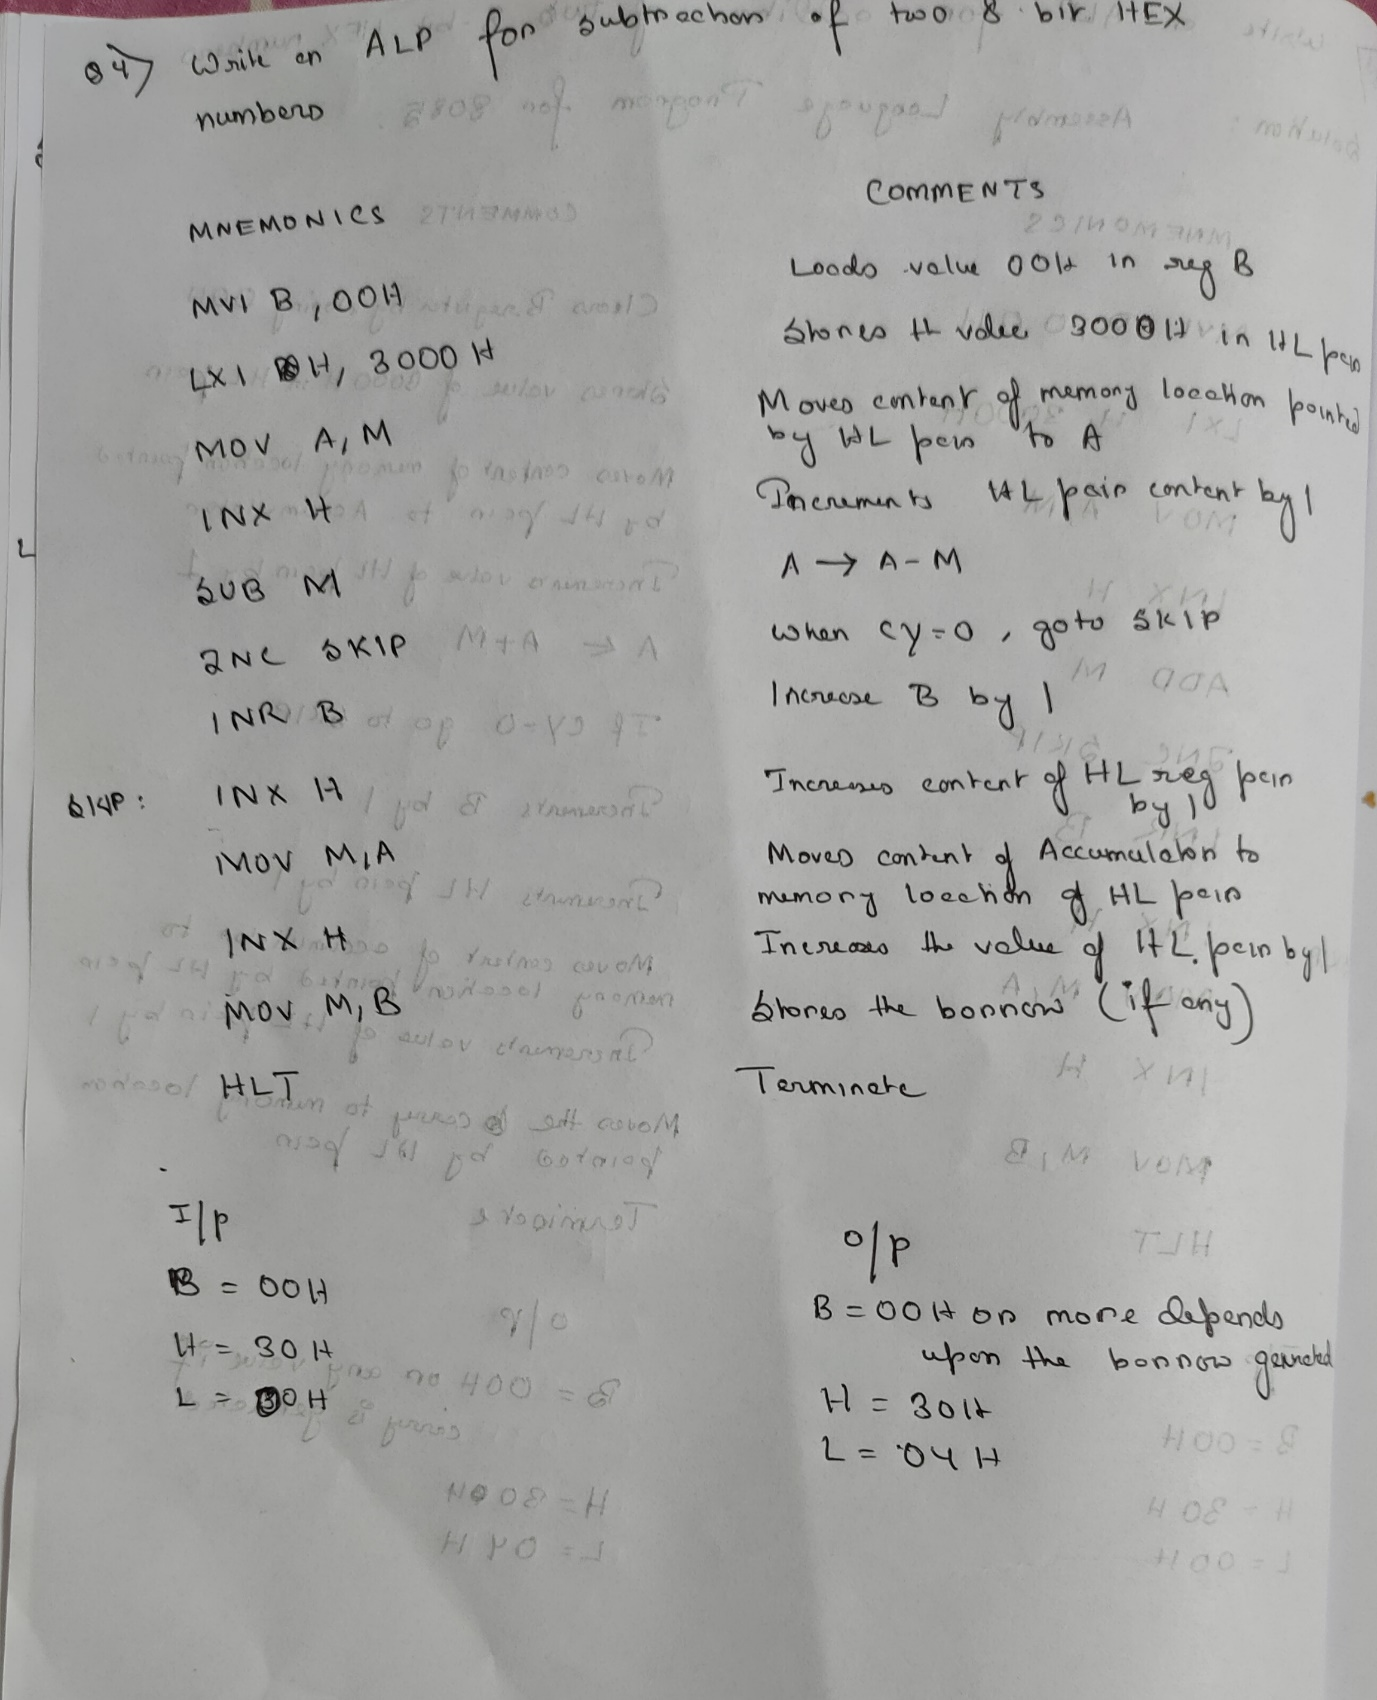 Q4) Write an ALP for subtraction of two 8 bit HEX
numbers
MNEMONICS COMMENTS
MVI B, 00H Loads value 00H in reg B
LXI H, 3000 H Stores th value 3000H in HL pair
MOV A, M Moves content of memory location pointed
by HL pair to A
INX H Increments HL pair content by 1
SUB M A → A - M
JNC SKIP When CY=0, goto SKIP
INR B Increase B by 1
SKIP: INX H Increases content of HL reg pair
by 1
MOV M, A Moves content of Accumulator to
memory location of HL pair
INX H Increases the value of HL pair by 1
MOV M, B Stores the borrow (if any)
HLT Terminate
I/p O/p
B = 00H B = 00H or more depends
upon the borrow
H = 30H H = 30H
L = 00H L = 04H